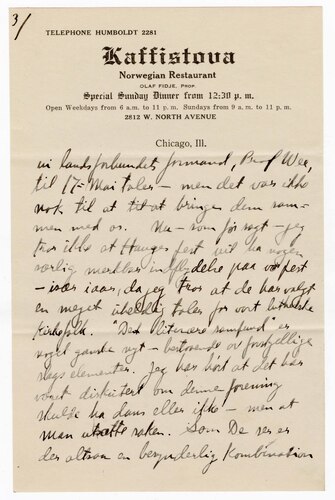 3/
TELEPHONE HUMBOLDT 2281
Kaffistova
Norwegian Restaurant
OLAF FIDJE, PROP.
Special Sunday Dinner from 12:30 p. m.
Open Weekdays from 6 a. m. to 11 p. m. Sundays from 9 a. m. to 11 p. m.
2812 W. NORTH AVENUE
Chicago, Ill.
formand, Prof Wee,
til 17-Mai taler – men det var ikke
nok til at bringe dem sam-
men med os. Na – som før sagt – jeg
tror ikke at Hauges fest vil ha nogen
særlig merkbar indflydelse paa vor fest
– især iaar, da jeg tror at de har valgt
en meget uheldig taler for vort
kirkefolk. "Det litterære samfund" er
noget ganske nyt – bestaaende av forskjellige
slags elementer. Jeg har hørt at det har
været diskutert om denne forening
skulde ha dans eller ikke – men at
man utsatte saken. Som De ser er
der altsaa en besynderlig kombination